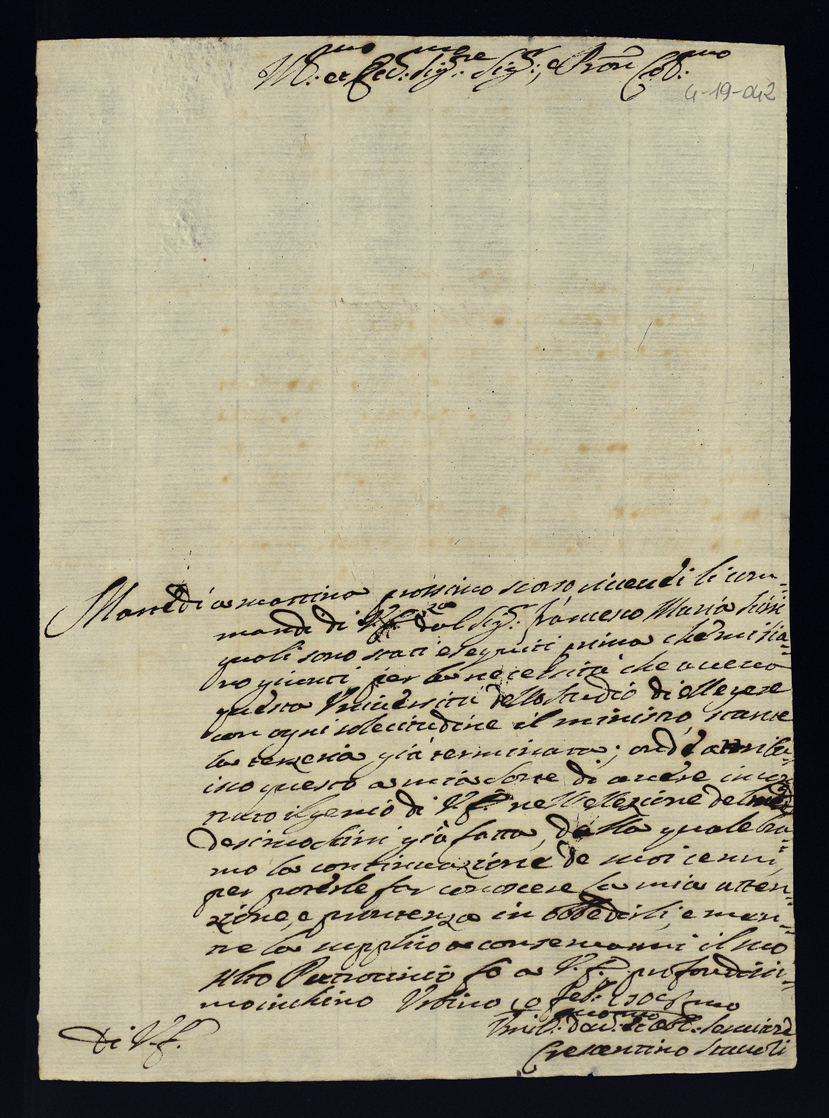 Ill.mo et Ecc.mo Sig.re Sig.r, e Pron Col.mo
4-19-042
Martedi a mattina prossimo scorso ricevei li com-
mandi di V.E. dal Sig.r Francesco Maria
quali sono stati eseguiti prima che mi sia-
no giunti per la necessità che aveva
questa Università dello Studio di eleggere
con ogni solecitudine il ministro, stante
la terzeria già terminata; ond'è attribu-
isco questo a mia sorte di avere incon-
trato il genio di V.E. nell'elezione del me-
desimo Lini già fatta, della quale bra-
mo la continuazione de suoi cenni,
per poterle far conoscere la mia atten-
zione, e prontezza in obbedirli, e men-
tre la supplico a conservarmi il suo
alto Patrocinio fo a V.E. profondissi-
mo inchino Urbino 10 feb.
Di V.E.
Umil.mo dev.mo et obl.mo Servitore
Crescentino Staccoli